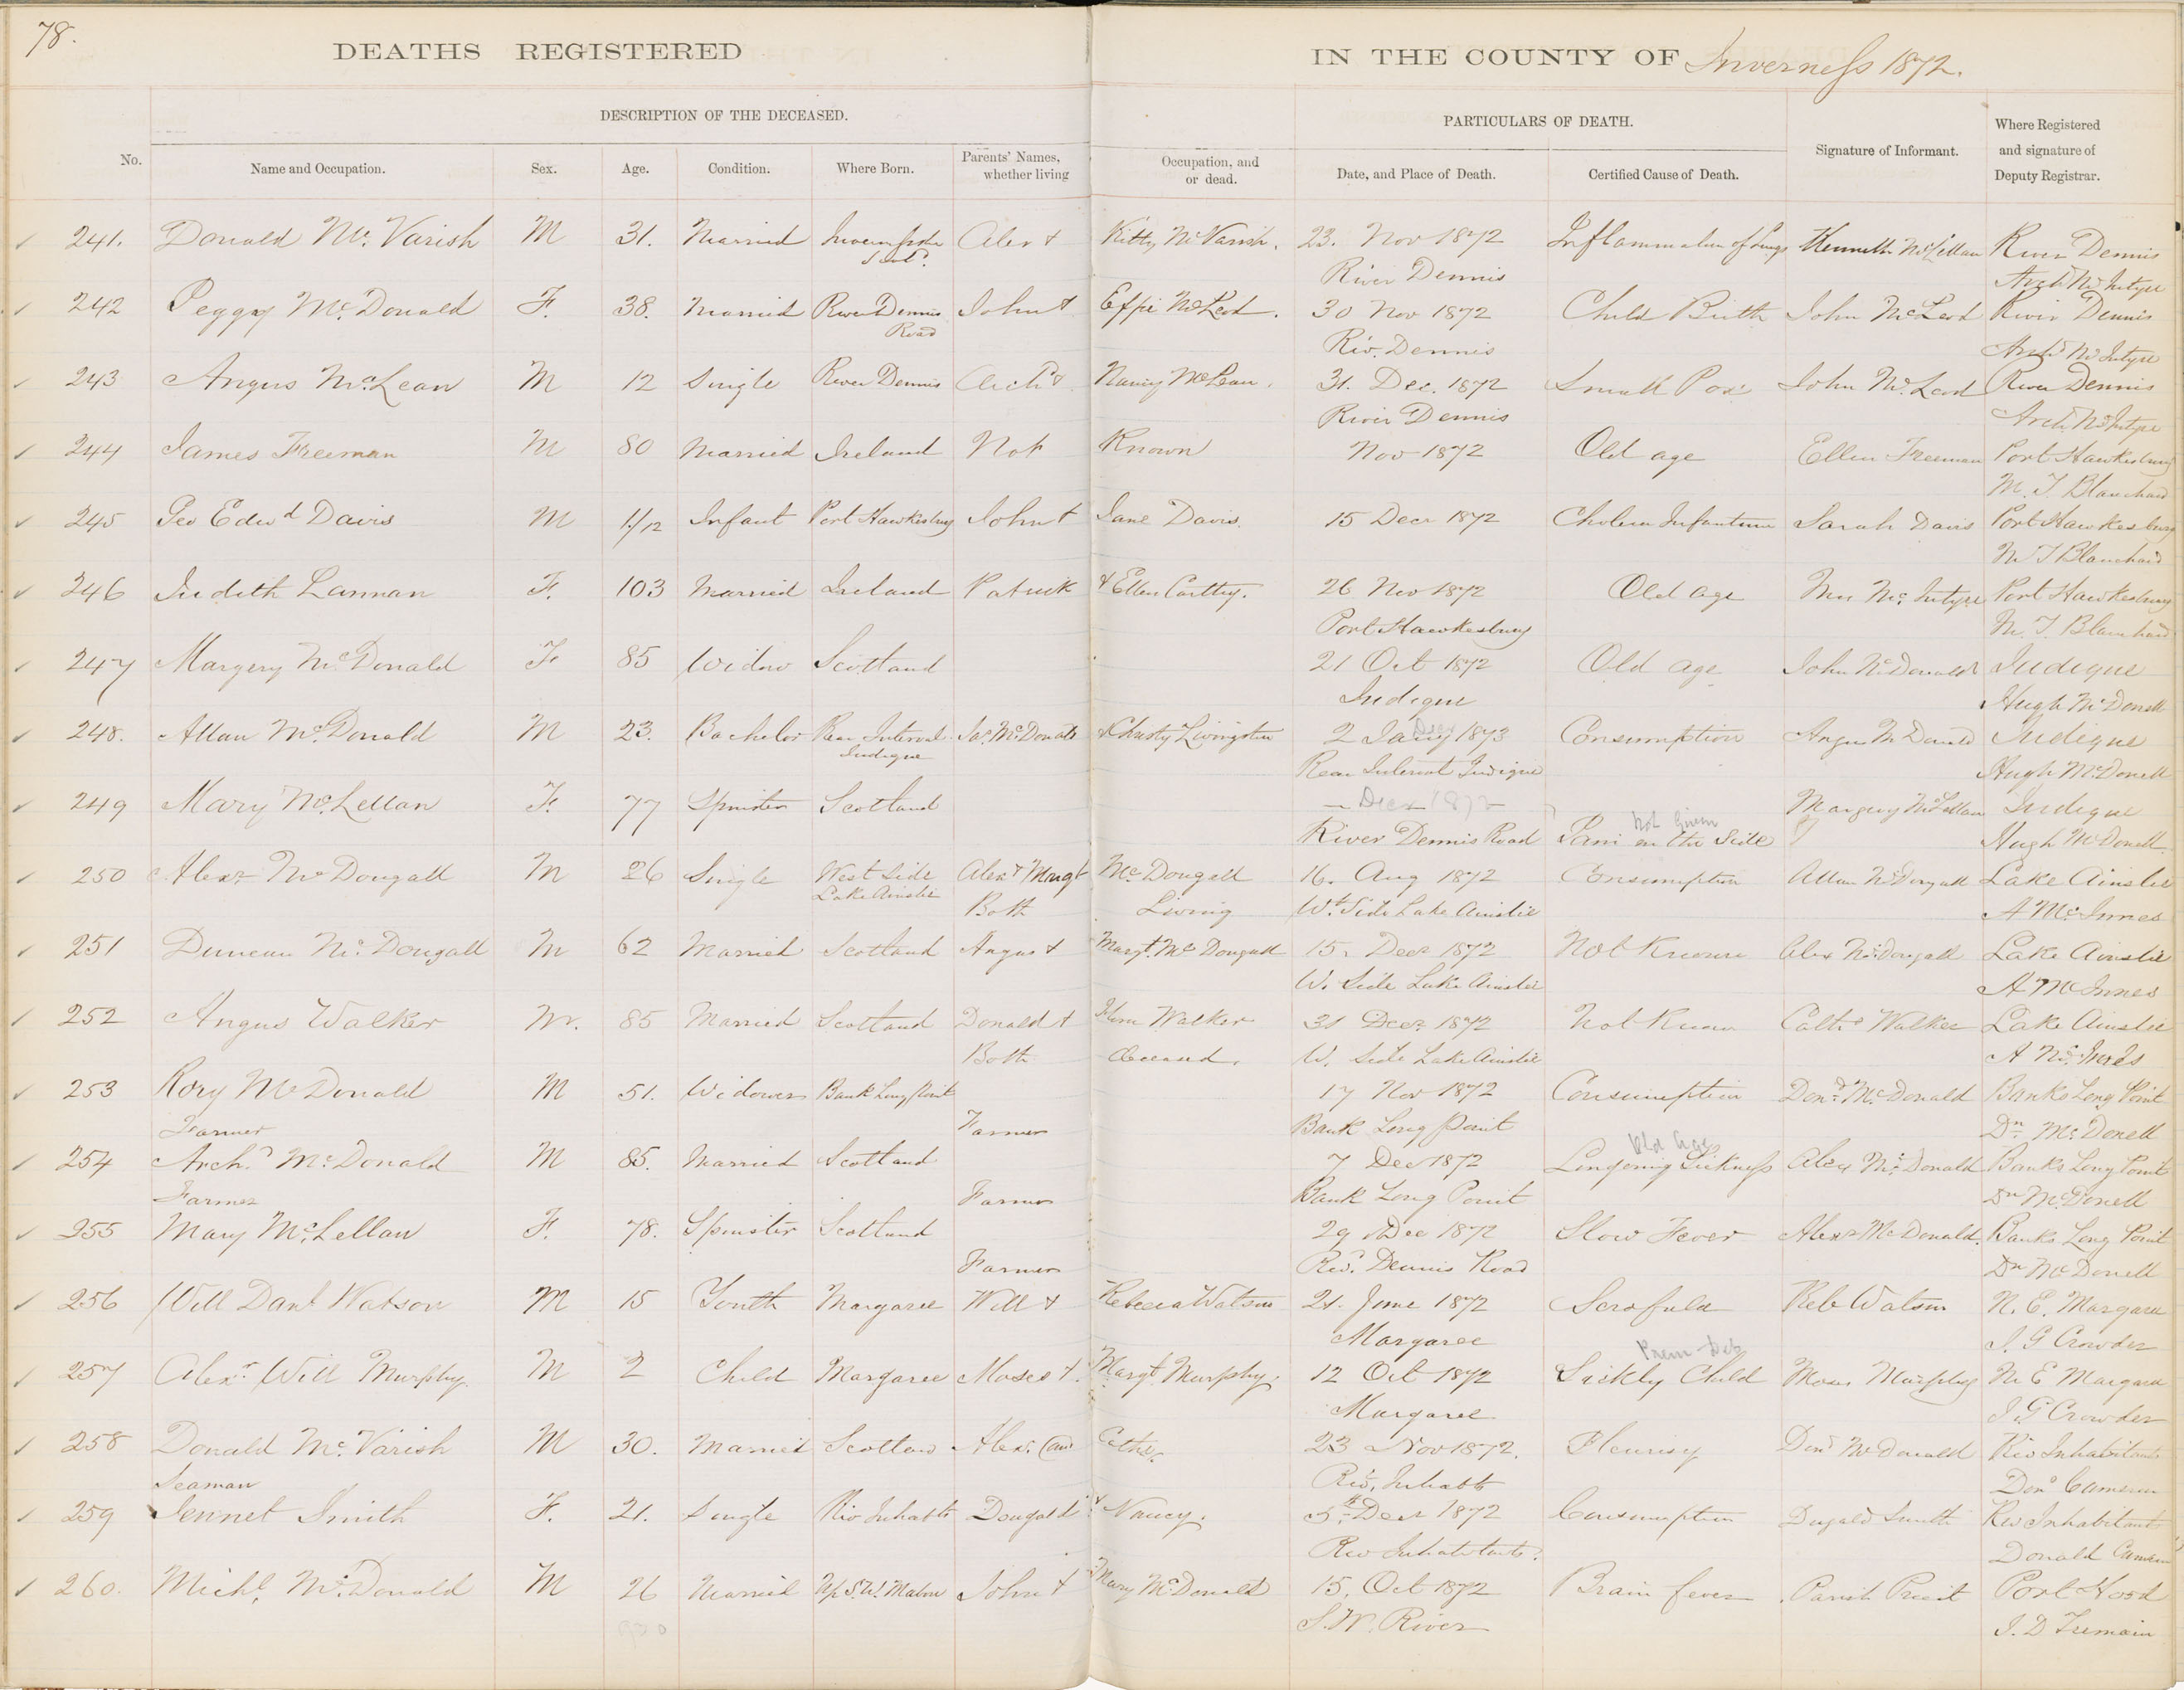 78.
DEATHS REGISTERED IN THE COUNTY OF Inverness 1872.
DESCRIPTION OF THE DECEASED. PARTICULARS OF DEATH.
No. Name and Occupation. Sex. Age. Condition. Where Born. Parents' Names, whether living Occupation, and or dead. Date, and Place of Death. Certified Cause of Death. Signature of Informant. Where Registered and signature of Deputy Registrar.
241. Donald Mc. Varish M 31. Married Alex + Kitty McVarish. 23. Nov 1872 Inflammation of Lungs Kenneth McLellan River Dennis
River Dennis Archd McIntyre
242 Peggy McDonald F. 38. Married River Dennis John + Effie McLeod. 30 Nov 1872 Child Birth John McLeod River Dennis
Road Riv. Dennis Archd McIntyre
243 Angus McLean M 12 Single River Dennis Archd + Nancy McLean. 31. Dec. 1872 Small Pox John McLeod River Dennis
River Dennis Archd McIntyre
244 James Freeman M 80 Married Ireland Not Known Nov 1872 Old age Ellen Freeman Port Hawkesbury
M. T. Blanchard
245 Geo Edwd Davis M 1/12 Infant Port Hawkesbury John + Jane Davis. 15 Decr 1872 Cholera Infantum Sarah Davis Port Hawkesbury
M T Blanchard
246 Judith Lannan F. 103 Married Ireland Patrick + Ellen Carthy. 26 Nov 1872 Old age Mrs McIntyre Port Hawkesbury
Port Hawkesbury M. T. Blanchard
247 Margery McDonald F. 85 Widow Scotland 21 Oct 1872 Old age John McDonald Judique
Judique Hugh McDonell
248. Allan McDonald M 23. Bachelor Rear Interval Jas. McDonald + Christy Livingston 2 Jany 1873 Consumption Angus McDonald Judique
Judique Rear Interval Judique Hugh McDonell
249 Mary McLellan F. 77 Spinster Scotland Decr 1872 Not Given Margery McLellan Judique
River Dennis Road Pain in the Side Hugh McDonell
250 Alexr McDougall M 26 Single West Side Alex + Margt McDougall 16. Aug 1872 Consumption Allan McDougall Lake Ainslie
Lake Ainslie Both Living Wt. Side Lake Ainslie A McInnes
251 Duncan Mc. Dougall M 62 Married Scotland Angus + Margt. McDougall 15. Decr 1872 Not Known Alex McDougall Lake Ainslie
W. Side Lake Ainslie A McInnes
252 Angus Walker M. 85 Married Scotland Donald + Walker 31 Decr 1872 Not Known Walker Lake Ainslie
Both deceased. W. Side Lake Ainslie A McInnes
253 Rory McDonald M 51. Widower Bank Long Point 17 Nov 1872 Consumption Dond. McDonald Banks Long Point
Farmer Farmer Bank Long Point Dn McDonell
254 Archd McDonald M 85. Married Scotland 7 Dec 1872 Old Age Lingering Sickness Alex McDonald Banks Long Point
Farmer Farmer Bank Long Point Dn McDonell
255 Mary McLellan F. 78. Spinster Scotland 29 Dec 1872 Slow Fever Alexr McDonald. Banks Long Point
Farmer Riv. Dennis Road Dn McDonell
256 Will Danl Watson M 15 Youth Margaree Will + Rebecca Watson 21. June 1872 Scrofula Reb Watson N. E. Margaree
Margaree J. G Crowder
257 Alexr Will Murphy. M 2 Child Margaree Moses + Margt Murphy. 12 Oct 1872 Sickly Child Moses Murphy N E Margaree
Margaree J. G Crowder
258 Donald Mc. Varish M 30. Married Scotland Alexr. and Cather. 23 Nov 1872. Pleurisy Dond McDonald Riv Inhabitants
Seaman Riv. Inhabts Dond Cameron
259 Jennet Smith F. 21. Single Riv Inhabts Dougald + Nancy. 5th Decr 1872 Consumption Dugald Smith Riv Inhabitants
Riv Inhabitants. Donald Cameron
260. Michl. McDonald M 26 Married John + Mary McDonald 15. Oct 1872 Brain fever Parish Priest Port Hood
S. W. River J. D Tremain